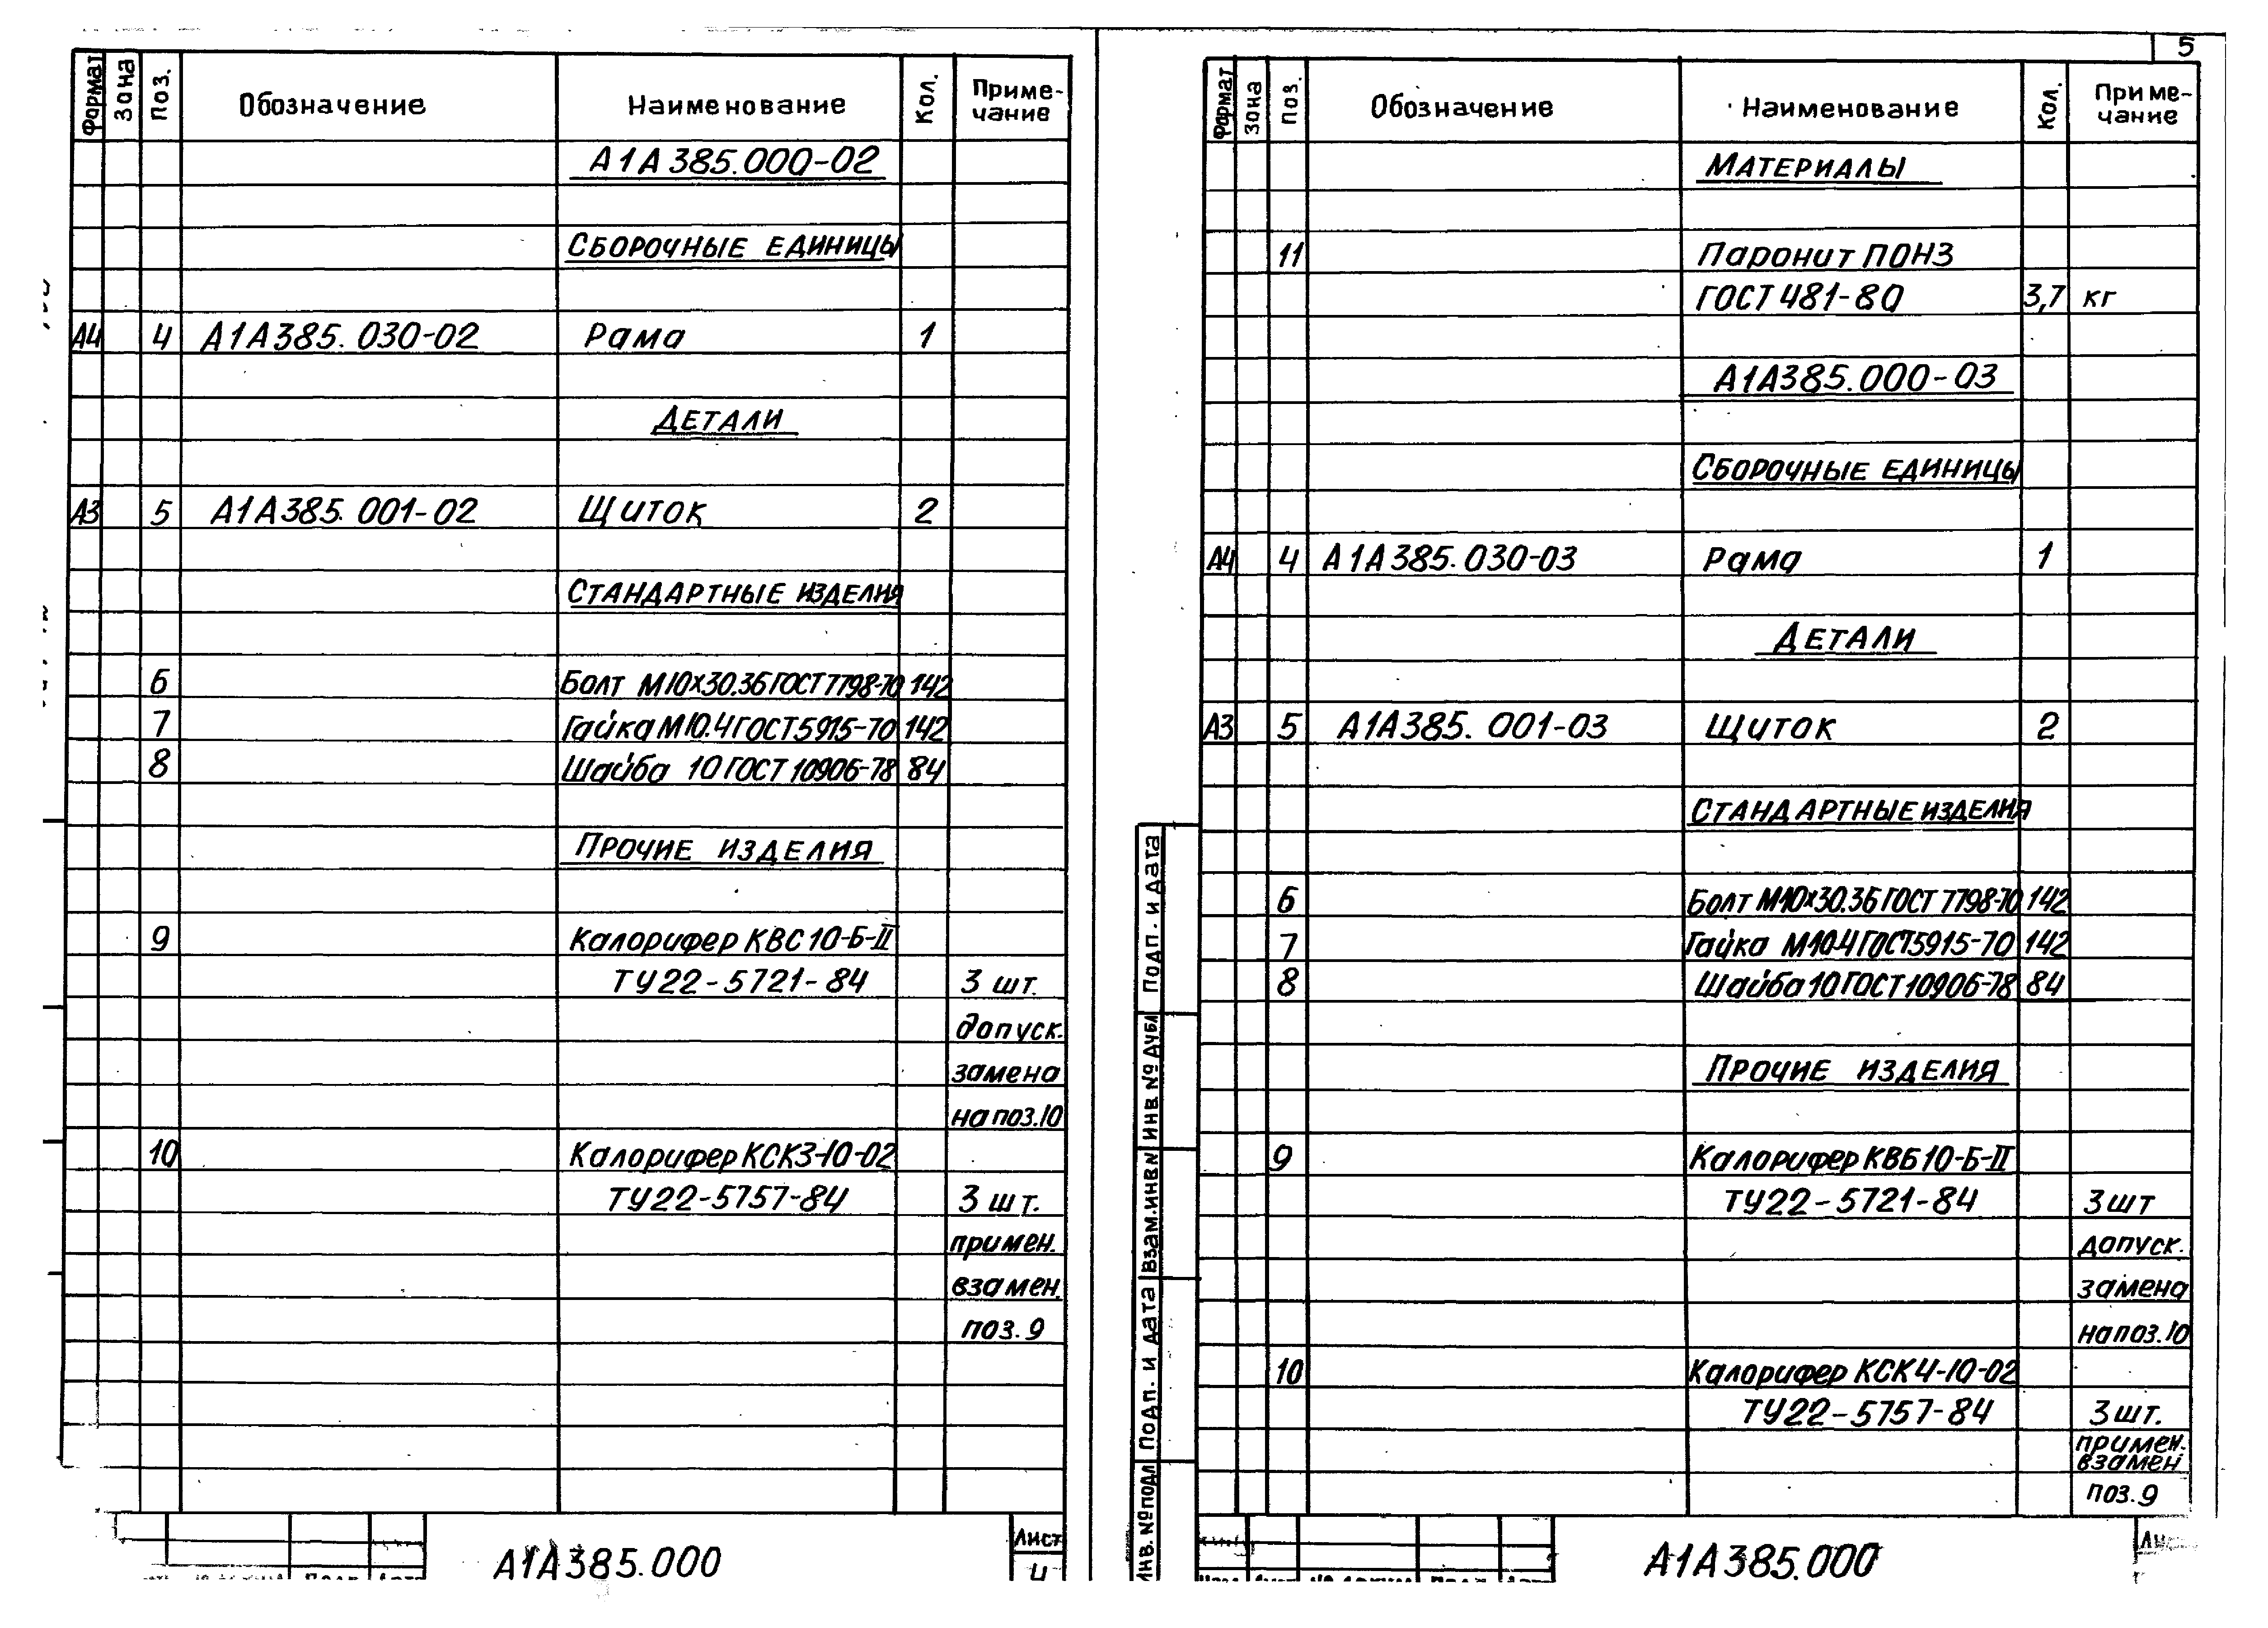 Формат Зона Поз. Обозначение Наименование Кол. Приме-
чание
А1А385.000-02
Сборочные единицы
А4 4 А1А385.030-02 Рама 1
Детали
А3 5 А1А385.001-02 Щиток 2
Стандартные изделия
6 Болт М10х30.36 ГОСТ 7798-70 142
7 Гайка М10.4 ГОСТ 5915-70 142
8 Шайба 10 ГОСТ 10906-78 84
Прочие изделия
9 Калорифер КВС10-Б-II
ТУ22-5721-84 3 шт.
допуск.
замена
на поз.10
10 Калорифер КСК3-10-02
ТУ22-5757-84 3 шт.
примен.
взамен.
поз.9
А1А385.000
Лист
4
5
Формат Зона Поз. Обозначение Наименование Кол. Приме-
чание
Материалы
11 Паронит ПОН3
ГОСТ 481-80 3,7 кг
А1А385.000-03
Сборочные единицы
А4 4 А1А385.030-03 Рама 1
Детали
А3 5 А1А385.001-03 Щиток 2
Стандартные изделия
6 Болт М10х30.36 ГОСТ 7798-70 142
7 Гайка М10.4 ГОСТ 5915-70 142
8 Шайба 10 ГОСТ 10906-78 84
Прочие изделия
9 Калорифер КВБ10-Б-II
ТУ22-5721-84 3 шт
допуск.
замена
на поз.10
10 Калорифер КСК4-10-02
ТУ22-5757-84 3 шт.
примен.
взамен
поз.9
Подп. и дата
Инв № дубл
Взам.инв №
Подп. и дата
Инв. № подл
А1А385.000